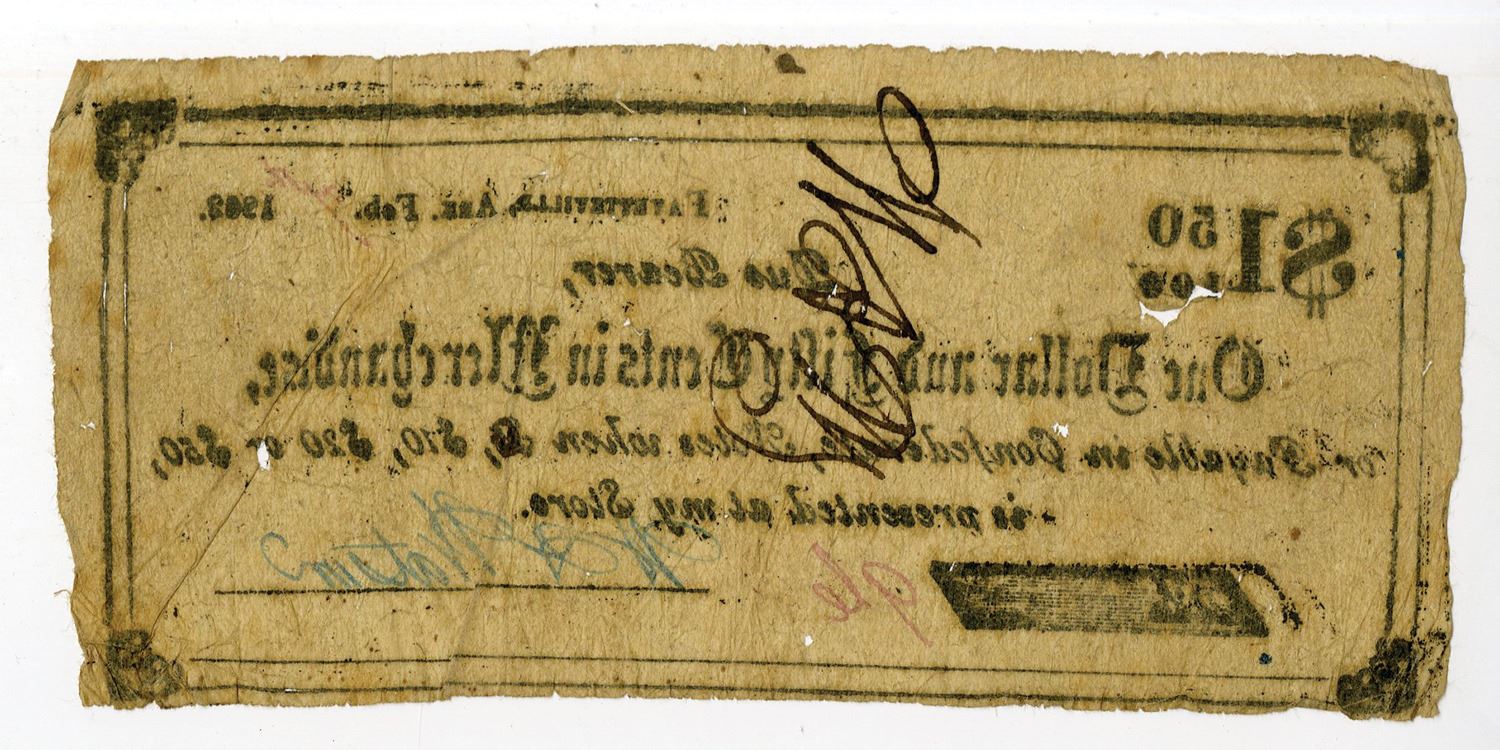 $1 50
100
Fayetteville, Ark. Feb. 1863.
Due Bearer,
One Dollar and Fifty Cents in Merchandise,
or Payable in Confederate Notes when $5, $10, $20 or $50,
is presented at my Store.